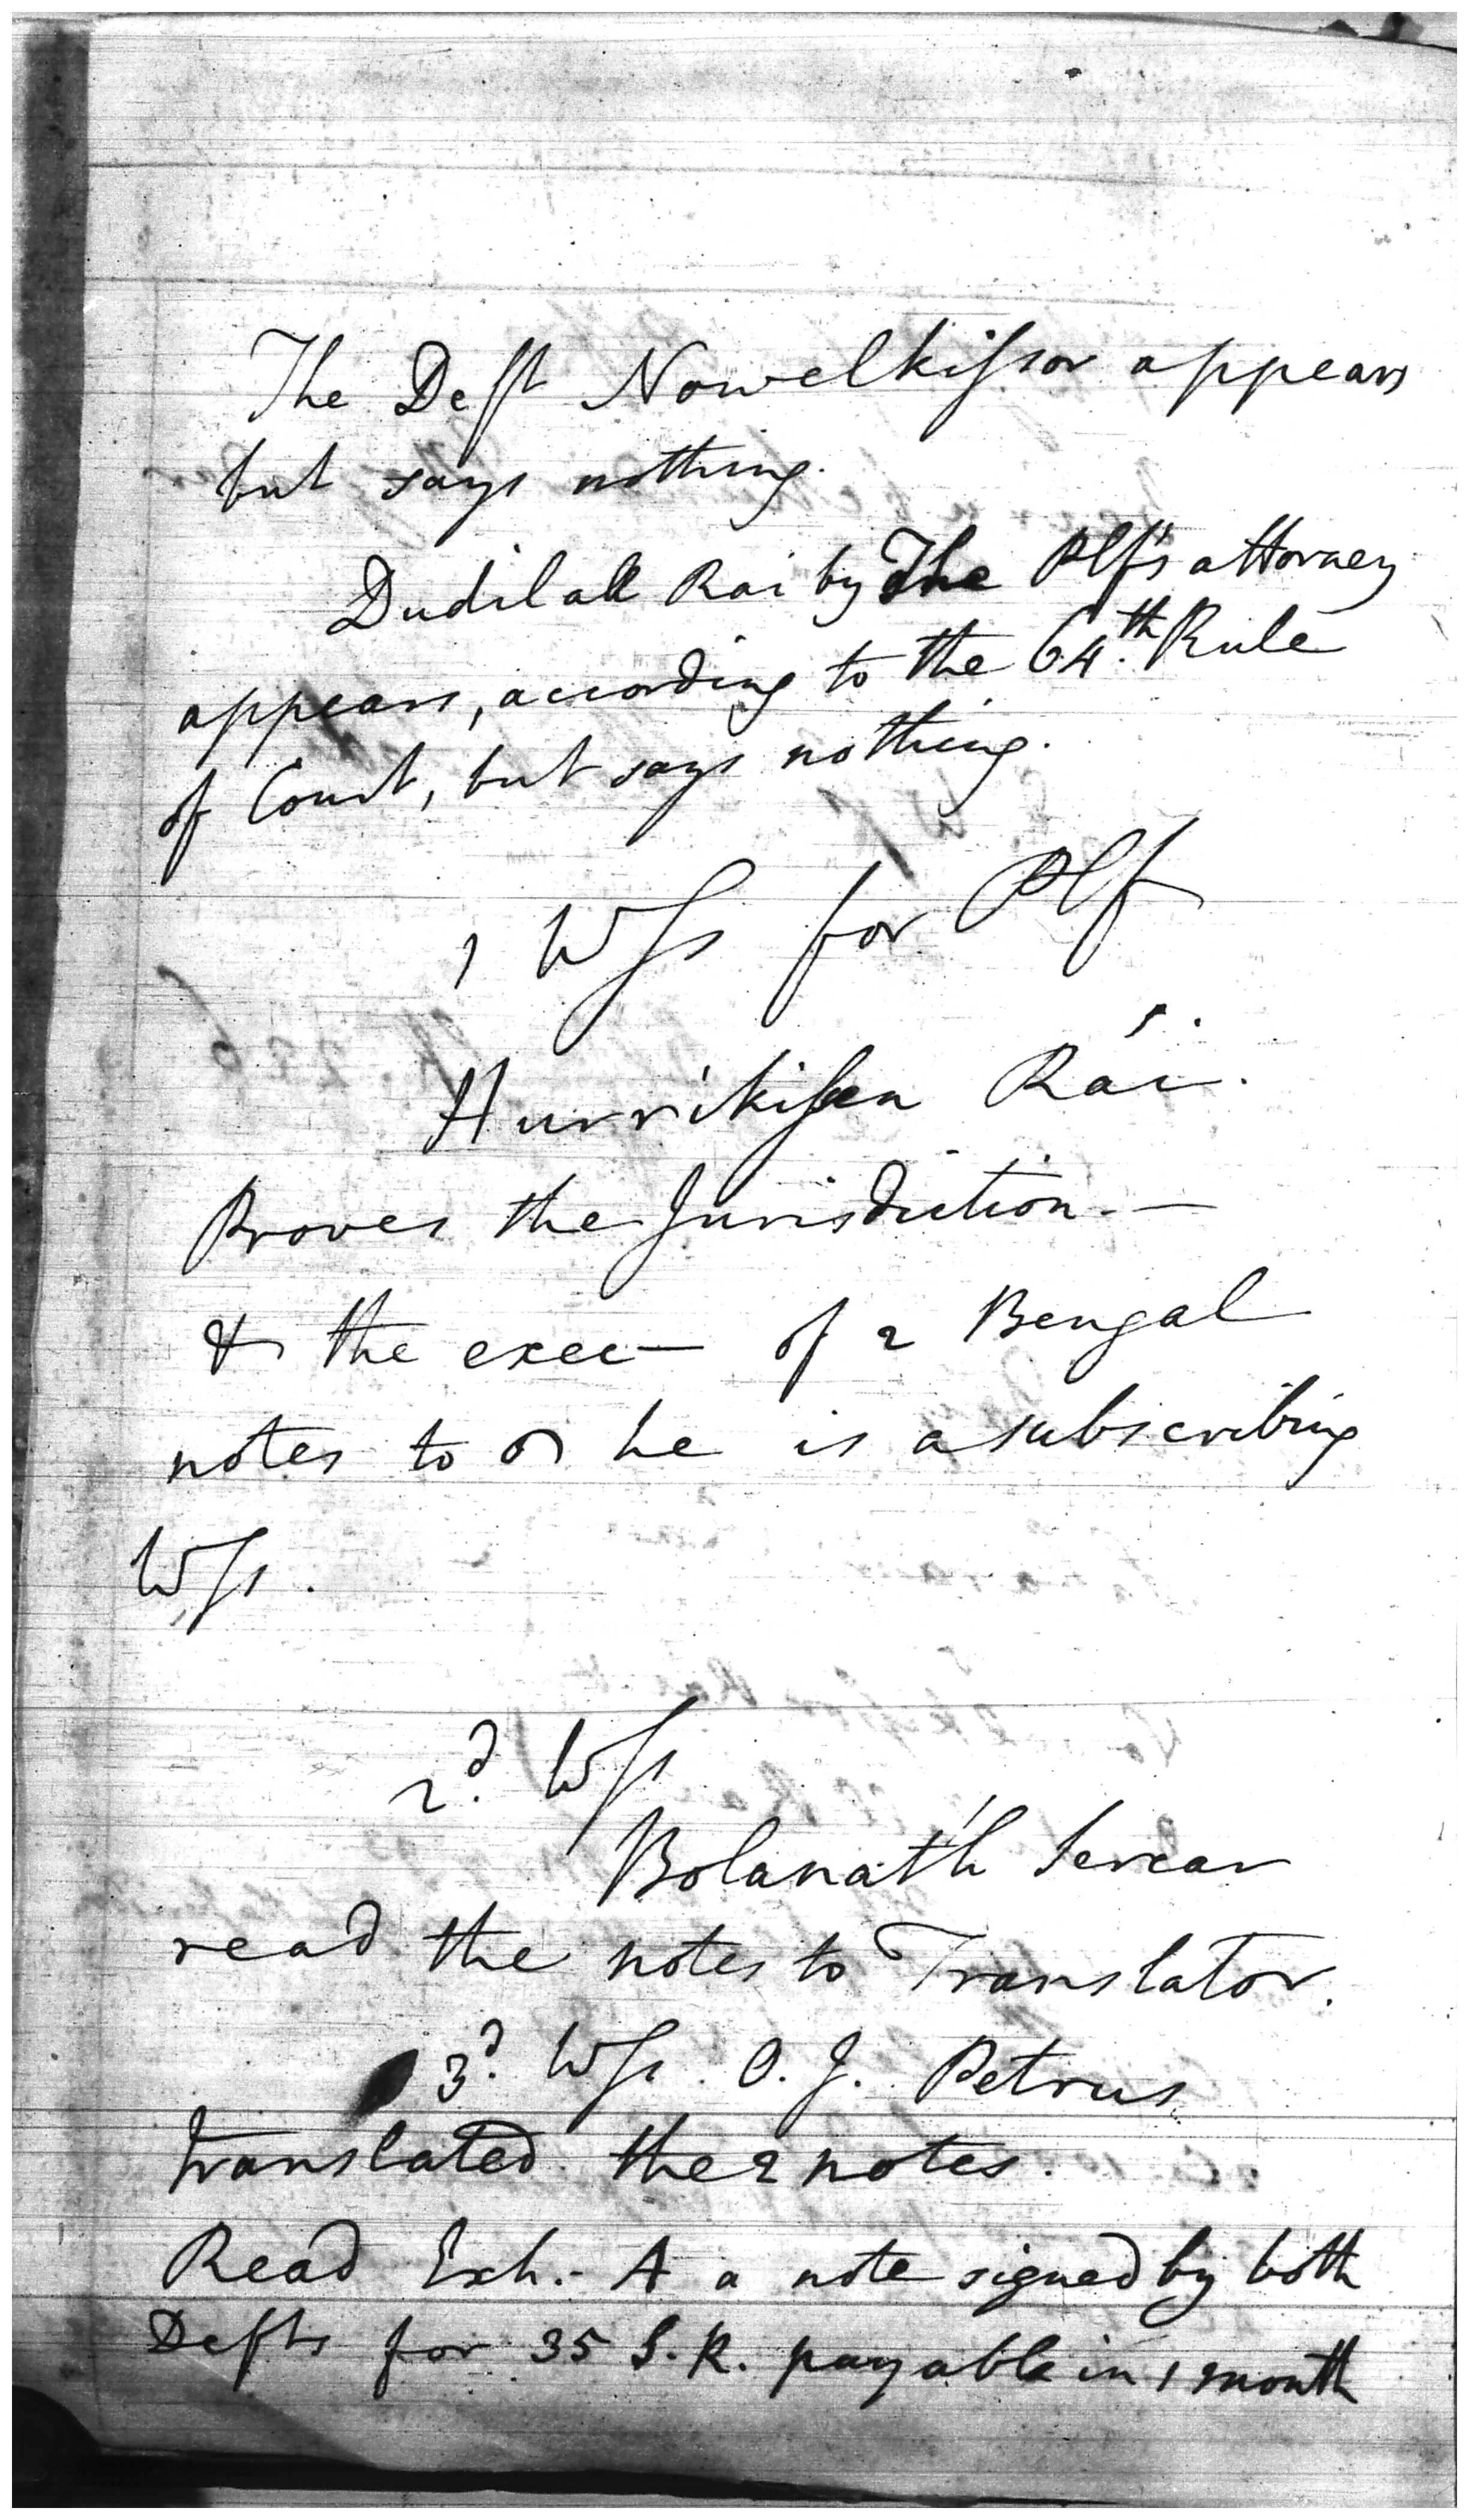 The Deft Nowelkissor appears
but says nothing.
Dudilall Rai by The Plf's attorney
appears, according to the 64.th Rule
of Court, but says nothing.
1 Wss for Plf
Hurrikissen Rái.
Proves the Jurisdiction. —
& the exec— of 2 Bengal
notes to he is a subscribing
Wss.
2d. Wss
Bolanáth Sercar
read the notes to Translator.
3d. Wss. O. J. Petrus
translated the 2 notes.
Read Exh. - A a note signed by both
Defts for 35 S. R. payable in 1 month